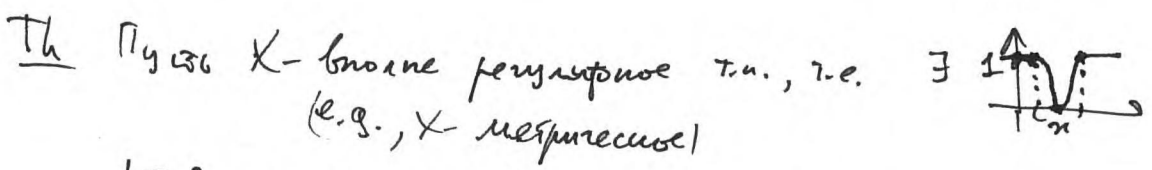 Th Пусть X - вполне регулярное т.п., т.е. ∃ 1 x
(e.g., X - метрическое)